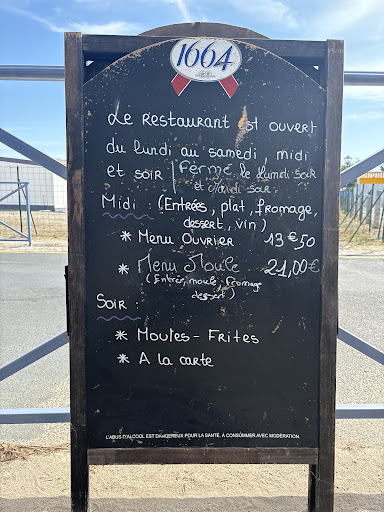 1664
Le Restaurant est ouvert
du lundi au samedi, midi
et soir | Fermé le lundi soir
et midi soir
Midi : (Entrées, plat, fromage,
dessert, vin)
* Menu Ouvrier 13€50
* Menu Moule 21,00€
(Entrée, moule, fromage
dessert)
Soir :
* Moules - Frites
* A la carte
L'ABUS D'ALCOOL EST DANGEREUX POUR LA SANTÉ, À CONSOMMER AVEC MODÉRATION.